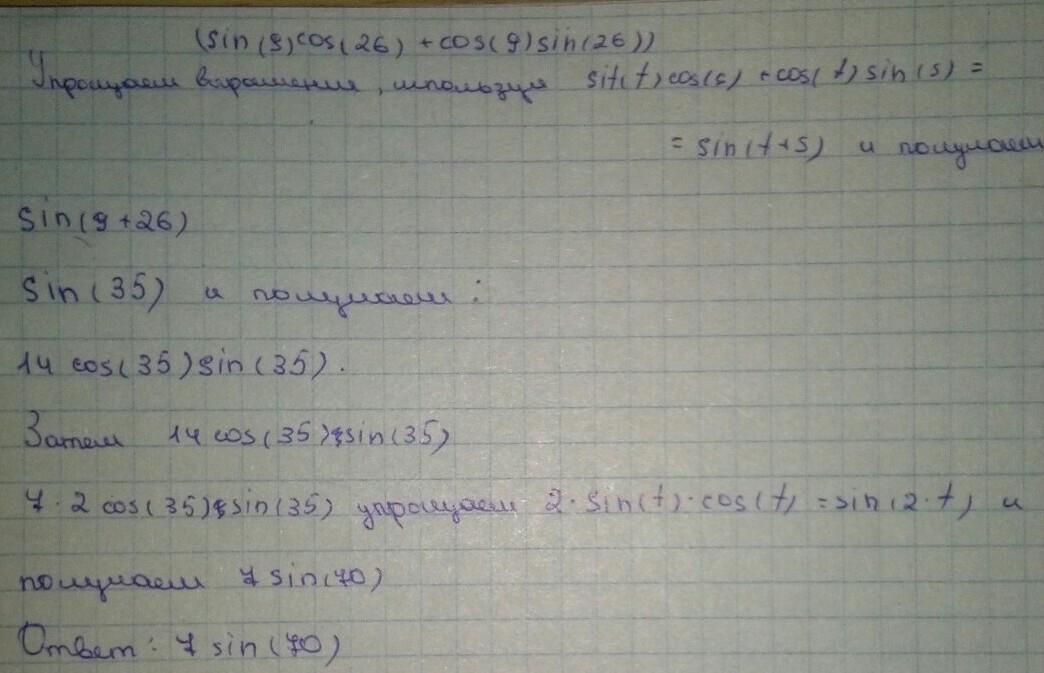 (sin(9)cos(26) + cos(9)sin(26))
Упрощаем выражения, используя sit(t)cos(s) + cos(t) sin(s) =
= sin(t+s) и получаем
sin(9+26)
sin(35) и получаем:
14 cos(35)sin(35).
Затем 14 cos(35)sin(35)
7·2 cos(35)sin(35) упрощаем 2·sin(t)·cos(t) = sin(2·t) и
получаем 7 sin(70)
Ответ: 7 sin(70)